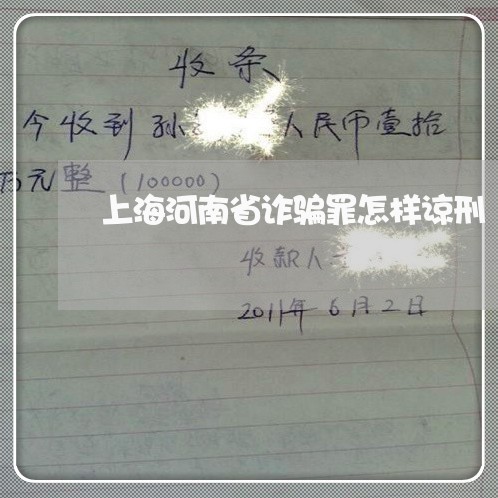 收条
今收到孙 人民币壹拾
万元整(100000)
上海河南省诈骗罪怎样谅刑
收款人
2011年6月2日